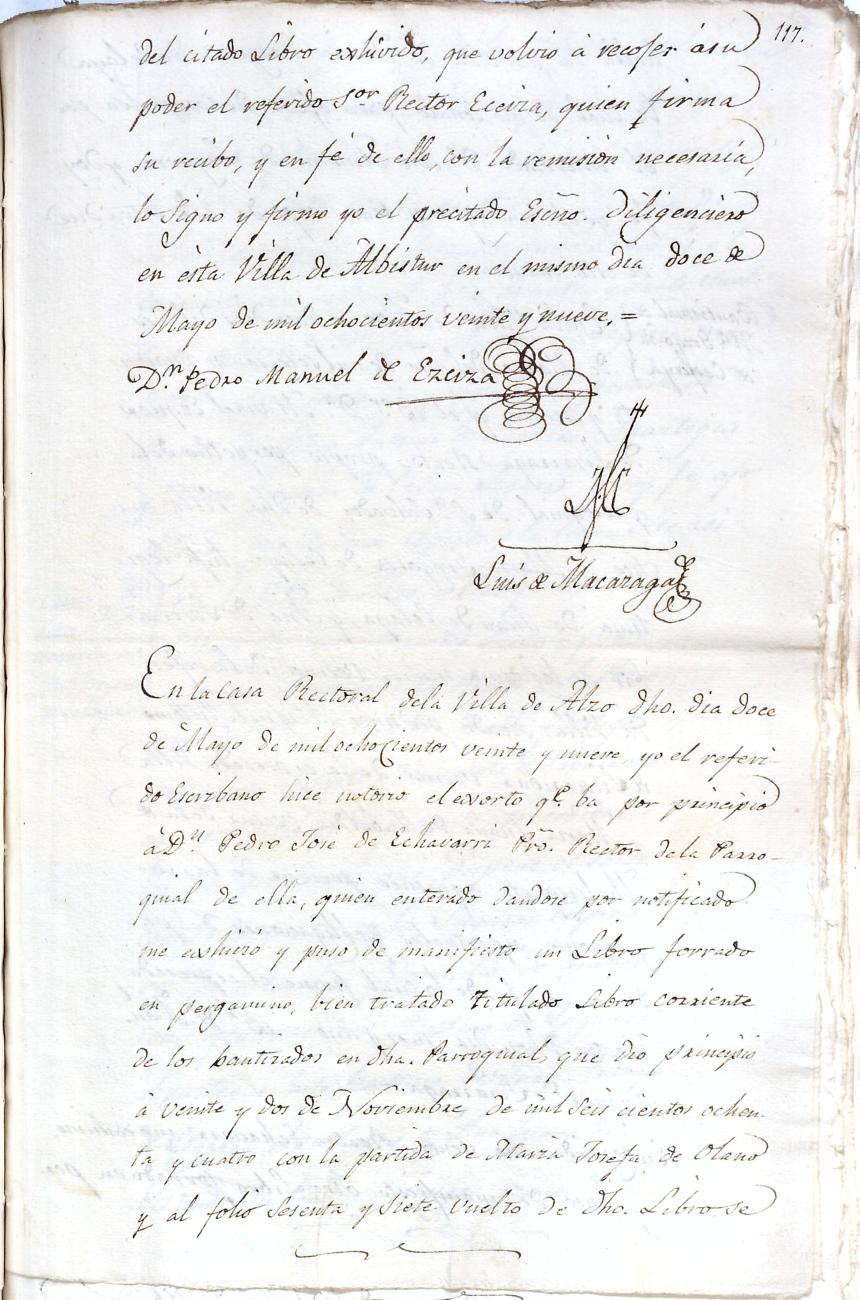 117.
del citado Libro exhivido, que volvio à recoser àsu
poder el referido Sor Rector Eceiza, quien firma
su recibo, y en fé de ello, con la remisión necesaria,
lo Signo y firmo yo el precitado Esño. Diligenciero
en èsta Villa de Albistur en el mismo dia doce de
Mayo de mil ochocientos veinte y nueve. =
Dn. Pedro Manuel de Ezeiza
Luis de Macazaga
En la casa Rectoral dela Villa de Alzo dho. dia doce
de Mayo de mil ochocientos veinte y nueve, yo el referi-
do Escribano hice notorio el exsorto qe. ba por principio
à Dn. Pedro José de Echavarri Pro. Rector dela Parro-
quial de ella, quien enterado dandose por notificado
me exhivió y puso de manifiesto un Libro forrado
en pergamino, bien tratado titulado Libro corriente
de los bautizados en dha. Parroquial, que dio principio
à veinte y dos de Noviembre de mil seis cientos ochen-
ta y cuatro con la partida de Maria Josefa de Olano
y al folio sesenta y siete vuelto de dho. Libro se